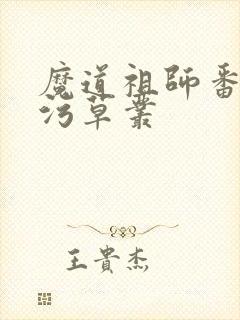 魔道祖师番
污草叢
王貴杰